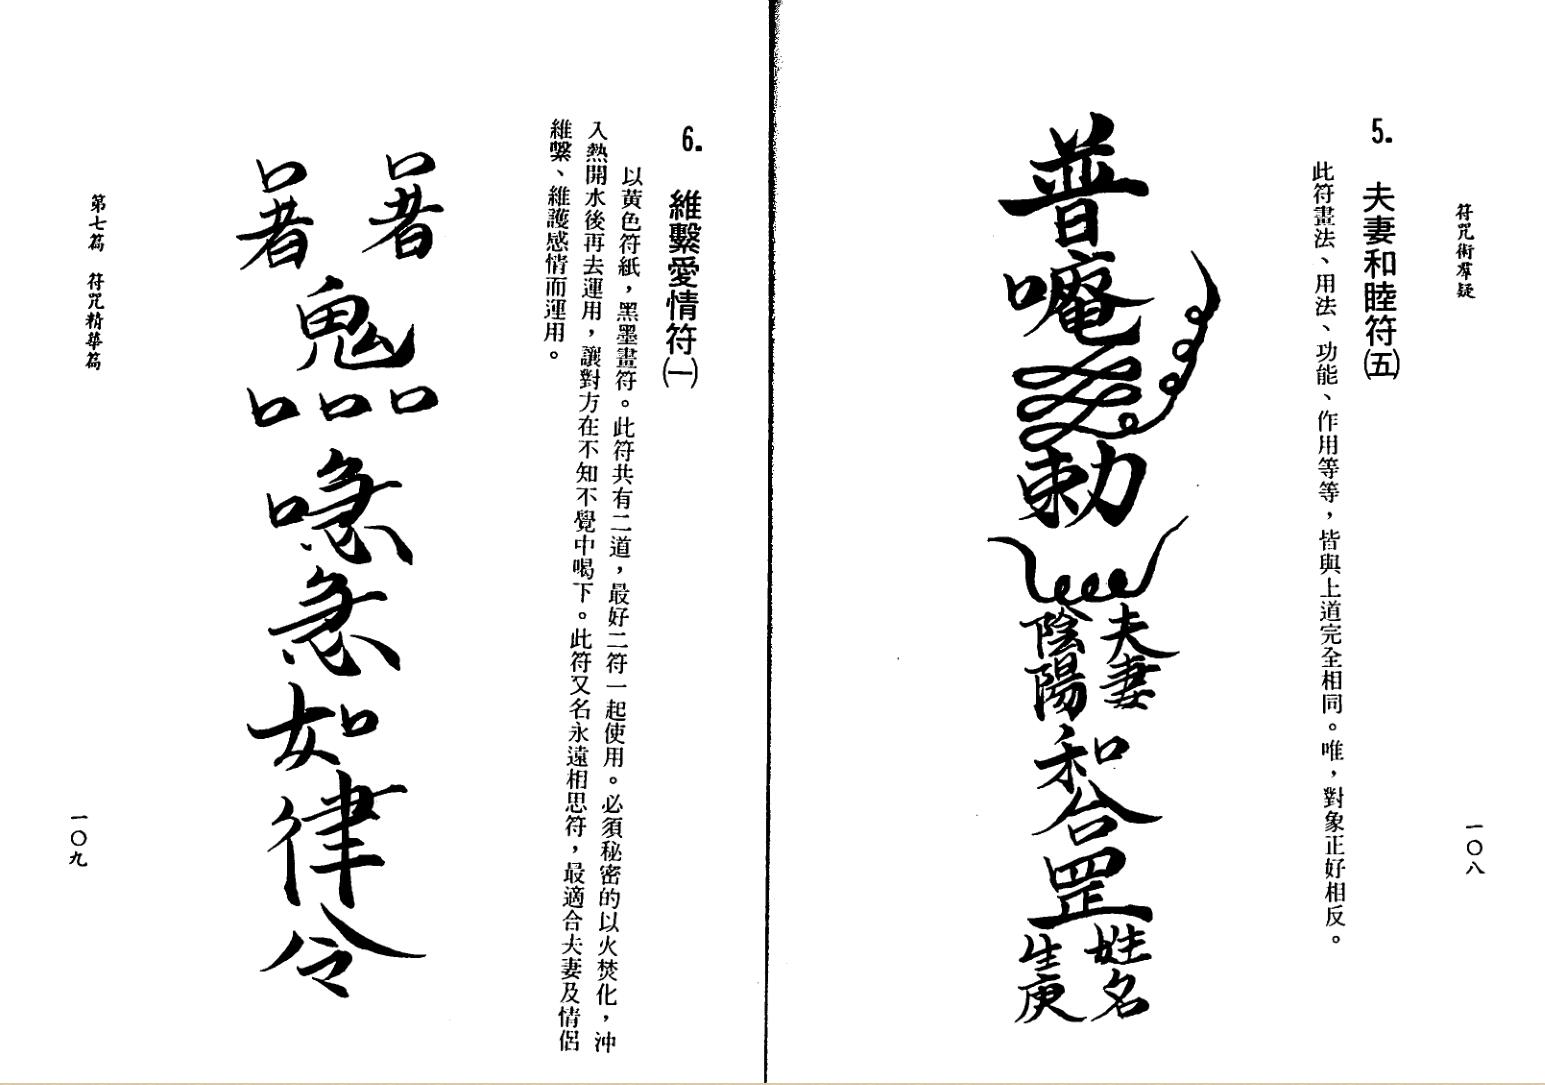 符咒術羣疑
5. 夫妻和睦符㈤
此符畫法、用法、功能、作用等等，皆與上道完全相同。唯，對象正好相反。
普
唵
勅
夫妻
陰陽
和合
罡
姓名
生庚
一〇八
6. 維繫愛情符㈠
以黃色符紙，黑墨畫符。此符共有二道，最好二符一起使用。必須秘密的以火焚化，沖
入熱開水後再去運用，讓對方在不知不覺中喝下。此符又名永遠相思符，最適合夫妻及情侶
維繫、維護感情而運用。
鬼
口口口
急
如
律
令
第七篇 符咒精華篇
一〇九